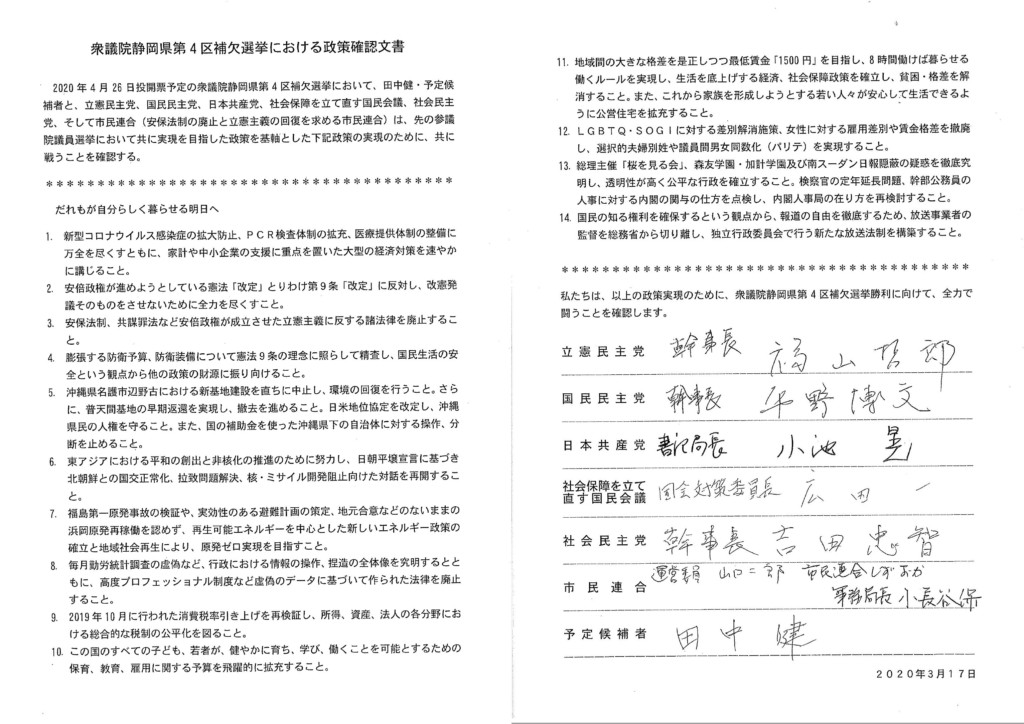 衆議院静岡県第4区補欠選挙における政策確認文書
2020年4月26日投開票予定の衆議院静岡県第4区補欠選挙において、田中健・予定候
補者と、立憲民主党、国民民主党、日本共産党、社会保障を立て直す国民会議、社会民主
党、そして市民連合(安保法制の廃止と立憲主義の回復を求める市民連合)は、先の参議
院議員選挙において共に実現を目指した政策を基軸とした下記政策の実現のために、共に
戦うことを確認する。
****************************************
だれもが自分らしく暮らせる明日へ
1. 新型コロナウイルス感染症の拡大防止、PCR検査体制の拡充、医療提供体制の整備に
万全を尽くすともに、家計や中小企業の支援に重点を置いた大型の経済対策を速やか
に講じること。
2. 安倍政権が進めようとしている憲法「改定」とりわけ第9条「改定」に反対し、改憲発
議そのものをさせないために全力を尽くすこと。
3. 安保法制、共謀罪法など安倍政権が成立させた立憲主義に反する諸法律を廃止するこ
と。
4. 膨張する防衛予算、防衛装備について憲法9条の理念に照らして精査し、国民生活の安
全という観点から他の政策の財源に振り向けること。
5. 沖縄県名護市辺野古における新基地建設を直ちに中止し、環境の回復を行うこと。さら
に、普天間基地の早期返還を実現し、撤去を進めること。日米地位協定を改定し、沖縄
県民の人権を守ること。また、国の補助金を使った沖縄県下の自治体に対する操作、分
断を止めること。
6. 東アジアにおける平和の創出と非核化の推進のために努力し、日朝平壌宣言に基づき
北朝鮮との国交正常化、拉致問題解決、核・ミサイル開発阻止向けた対話を再開するこ
と。
7. 福島第一原発事故の検証や、実効性のある避難計画の策定、地元合意などのないままの
浜岡原発再稼働を認めず、再生可能エネルギーを中心とした新しいエネルギー政策の
確立と地域社会再生により、原発ゼロ実現を目指すこと。
8. 毎月勤労統計調査の虚偽など、行政における情報の操作、捏造の全体像を究明するとと
もに、高度プロフェッショナル制度など虚偽のデータに基づいて作られた法律を廃止
すること。
9. 2019年10月に行われた消費税率引き上げを再検証し、所得、資産、法人の各分野にお
ける総合的な税制の公平化を図ること。
10. この国のすべての子ども、若者が、健やかに育ち、学び、働くことを可能とするための
保育、教育、雇用に関する予算を飛躍的に拡充すること。
11. 地域間の大きな格差を是正しつつ最低賃金「1500円」を目指し、8時間働けば暮らせる
働くルールを実現し、生活を底上げする経済、社会保障政策を確立し、貧困・格差を解
消すること。また、これから家族を形成しようとする若い人々が安心して生活できるよ
うに公営住宅を拡充すること。
12. LGBTQ・SOGIに対する差別解消施策、女性に対する雇用差別や賃金格差を撤廃
し、選択的夫婦別姓や議員間男女同数化(パリテ)を実現すること。
13. 総理主催「桜を見る会」、森友学園・加計学園及び南スーダン日報隠蔽の疑惑を徹底究
明し、透明性が高く公平な行政を確立すること。検察官の定年延長問題、幹部公務員の
人事に対する内閣の関与の仕方を点検し、内閣人事局の在り方を再検討すること。
14. 国民の知る権利を確保するという観点から、報道の自由を徹底するため、放送事業者の
監督を総務省から切り離し、独立行政委員会で行う新たな放送法制を構築すること。
****************************************
私たちは、以上の政策実現のために、衆議院静岡県第4区補欠選挙勝利に向けて、全力で
闘うことを確認します。
立憲民主党 幹事長 福山哲郎
国民民主党 幹事長 平野博文
日本共産党 書記局長 小池 晃
社会保障を立て
直す国民会議 国会対策委員長 広田一
社会民主党 幹事長 吉田忠智
市民連合 運営委員 山口二郎 市民連合しずおか
事務局長 小長谷保
予定候補者 田中健
2020年3月17日